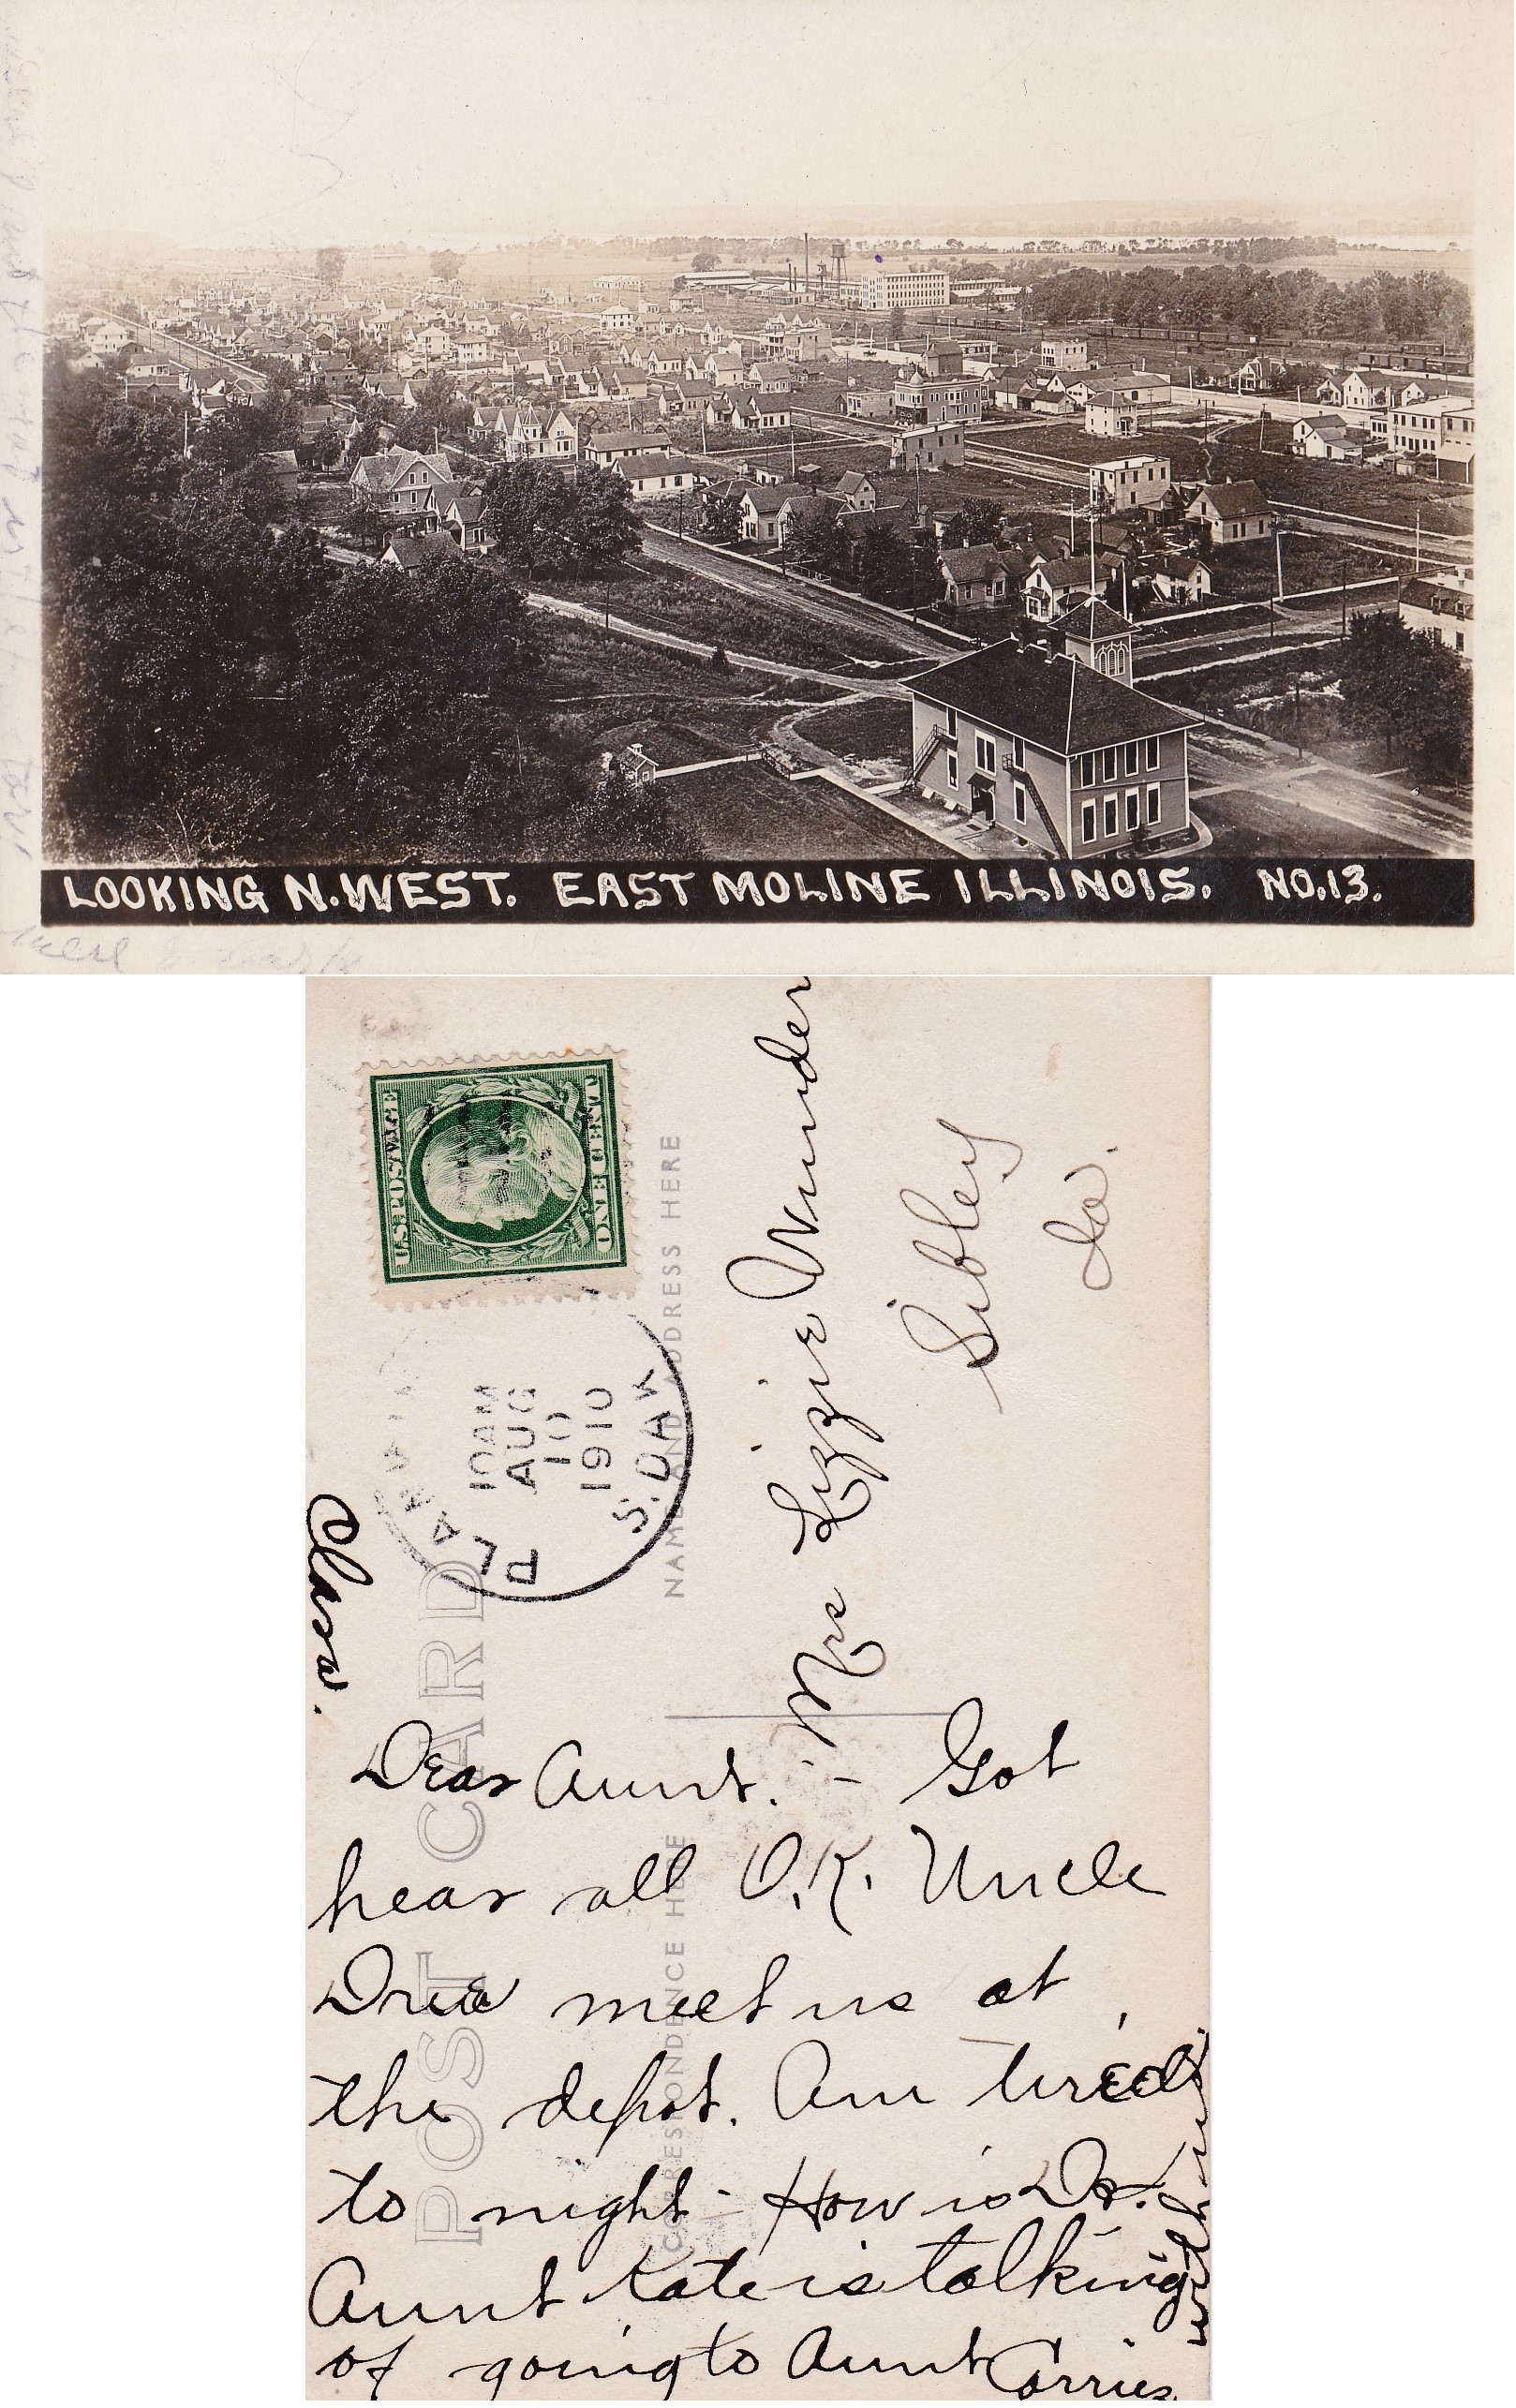 LOOKING N.WEST. EAST MOLINE ILLINOIS. NO.13.
U.S. POSTAGE
ONE CENT
PLANKIN
10AM
AUG
10
1910
S.DAK
POST CARD
NAME AND ADDRESS HERE
CORRESPONDENCE HERE
Mrs Lizzie Wunder
Sibley
Ia.
Dear Aunt. - Got
hear all O.K. Uncle
Drew meet us at
the depot. Am tired
to night - How is Dr.
Aunt Kate is talking
of going to Aunt Corries
with us.
Clara.